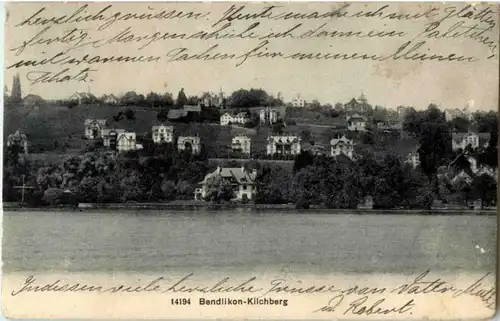 herzlich grüssen. Heute mache ich mit Glätten
fertig Morgen schicke ich dann dein Paletthen
mit warmen Sachen für meinen kleinen
Schatz
14194 Bendlikon-Kilchberg
Indessen viele herzliche Grüsse von Vater, Mutter
u. Robert.